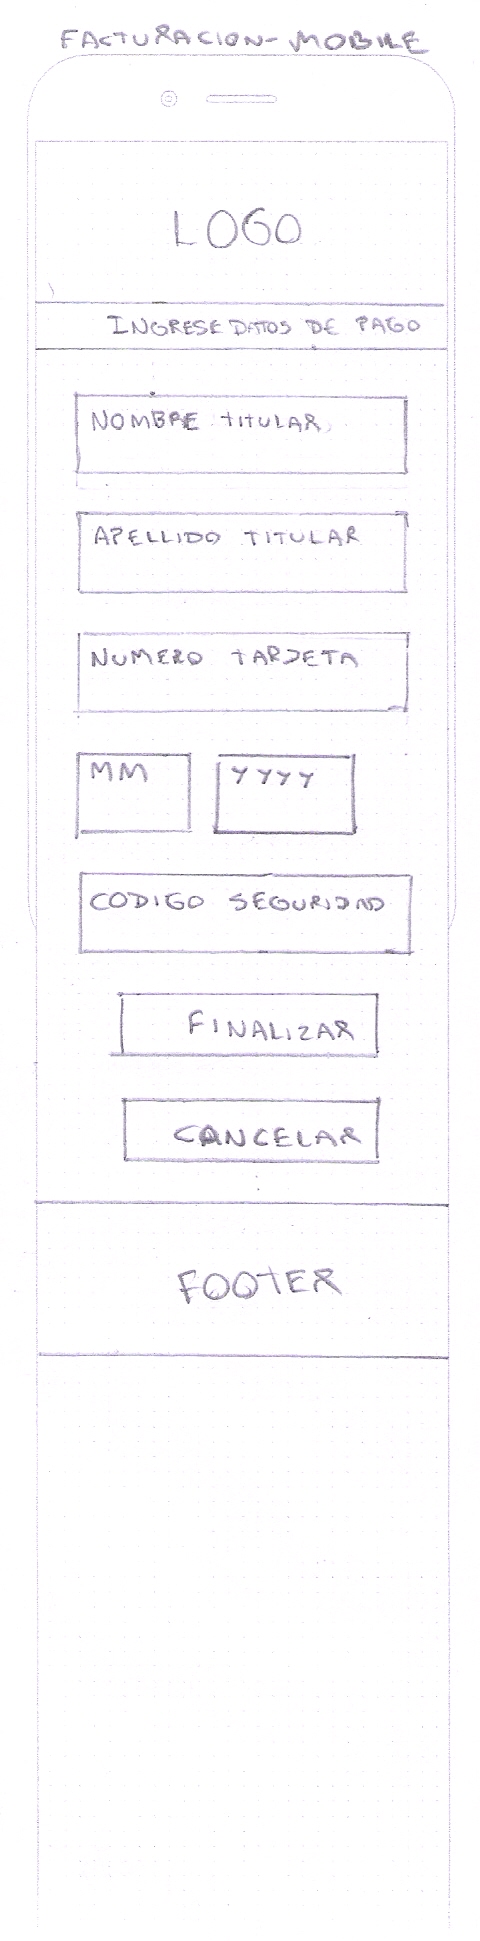 FACTURACION-MOBILE
LOGO
INGRESE DATOS DE PAGO
NOMBRE TITULAR
APELLIDO TITULAR
NUMERO TARJETA
MM YYYY
CODIGO SEGURIDAD
FINALIZAR
CANCELAR
FOOTER